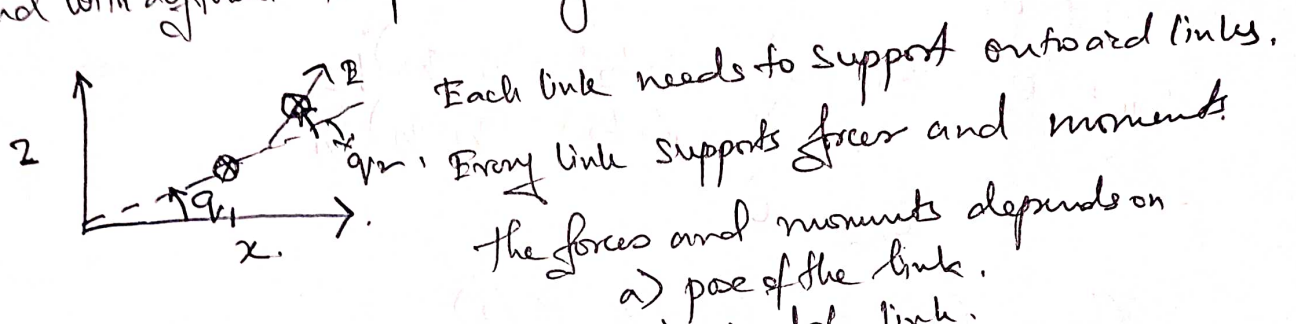 Each link needs to support outward links.
Every link supports forces and moments.
the forces and moments depends on
a) pose of the link.
link.
Z
E
q2
q1
x.